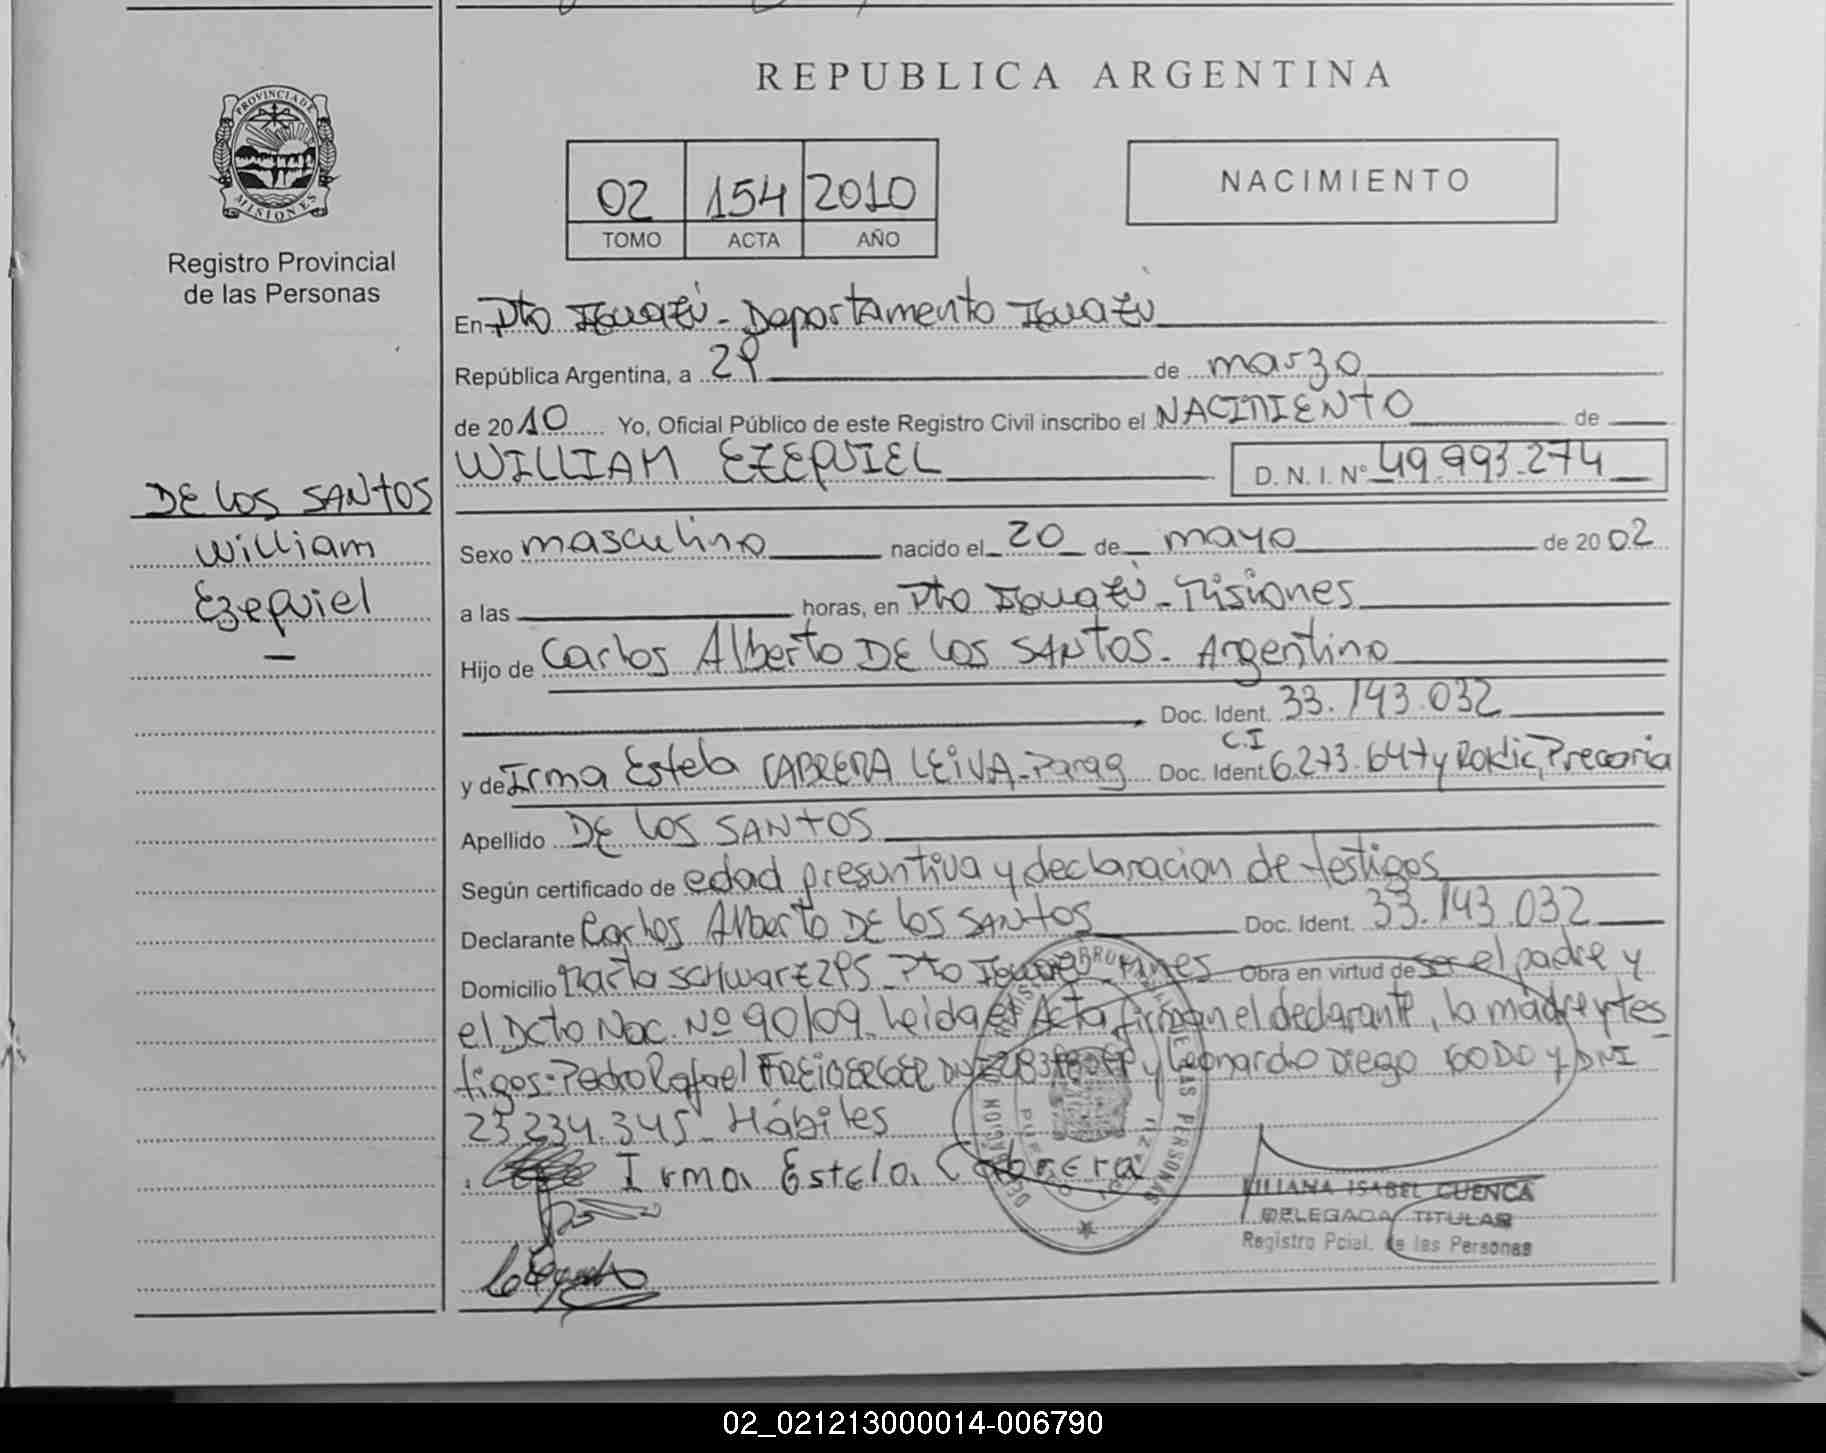 REPUBLICA ARGENTINA
PROVINCIA DE MISIONES
Registro Provincial
de las Personas
02 154 2010
TOMO ACTA AÑO
NACIMIENTO
En Pto Iguazú - Departamento Iguazú
República Argentina, a 29 de marzo
de 2010 Yo, Oficial Público de este Registro Civil inscribo el NACIMIENTO de
WILLIAM EZEQUIEL D. N. I. Nº 49.993.274
DE LOS SANTOS
William
Ezequiel
Sexo masculino nacido el 20 de mayo de 2002
a las horas, en Pto Iguazú - Misiones
Hijo de Carlos Alberto DE LOS SANTOS - Argentino
Doc. Ident. 33.143.032
C.I
y de Irma Estela CABRERA LEIVA - Parag Doc. Ident. 6.273.647 y Precaria
Apellido DE LOS SANTOS
Según certificado de edad presuntiva y declaracion de testigos
Declarante Carlos Alberto DE LOS SANTOS Doc. Ident. 33.143.032
Domicilio Marta Schwarz 295 - Pto Iguazú - Mnes Obra en virtud de ser el padre y
el Dcto Nac. Nº 90/09. Leida el Acta firman el declarante, la madre y tes
tigos: Pedro Rafael y Leonardo Diego GODOY DNI
23.234.345 - Hábiles
Irma Estela Cabrera
LILIANA ISABEL CUENCA
DELEGADA TITULAR
Registro Pcial. de las Personas
02_021213000014-006790